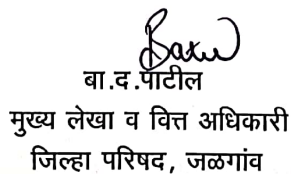 बा.द.पाटील
मुख्य लेखा व वित्त अधिकारी
जिल्हा परिषद, जळगांव